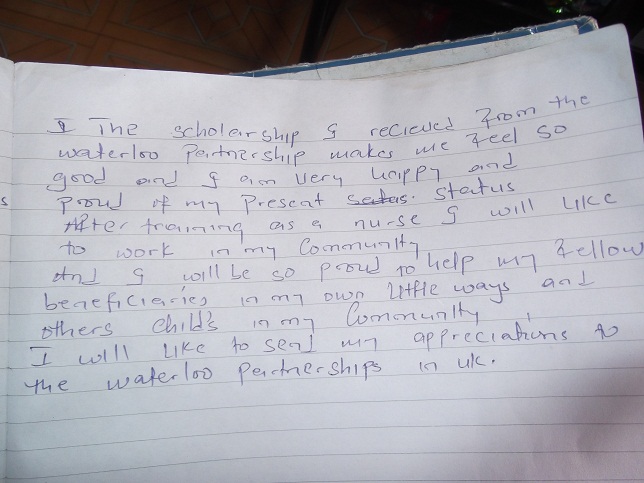 I The scholarship I recieved from the
waterloo partnership makes me feel so
good and I am very happy and
s
proud of my present status. status
After training as a nurse I will like
to work in my community
And I will be so proud to help my fellow
beneficiaries in my own little ways and
others child's in my community,
I will like to send my appreciations to
the waterloo partnerships in uk.